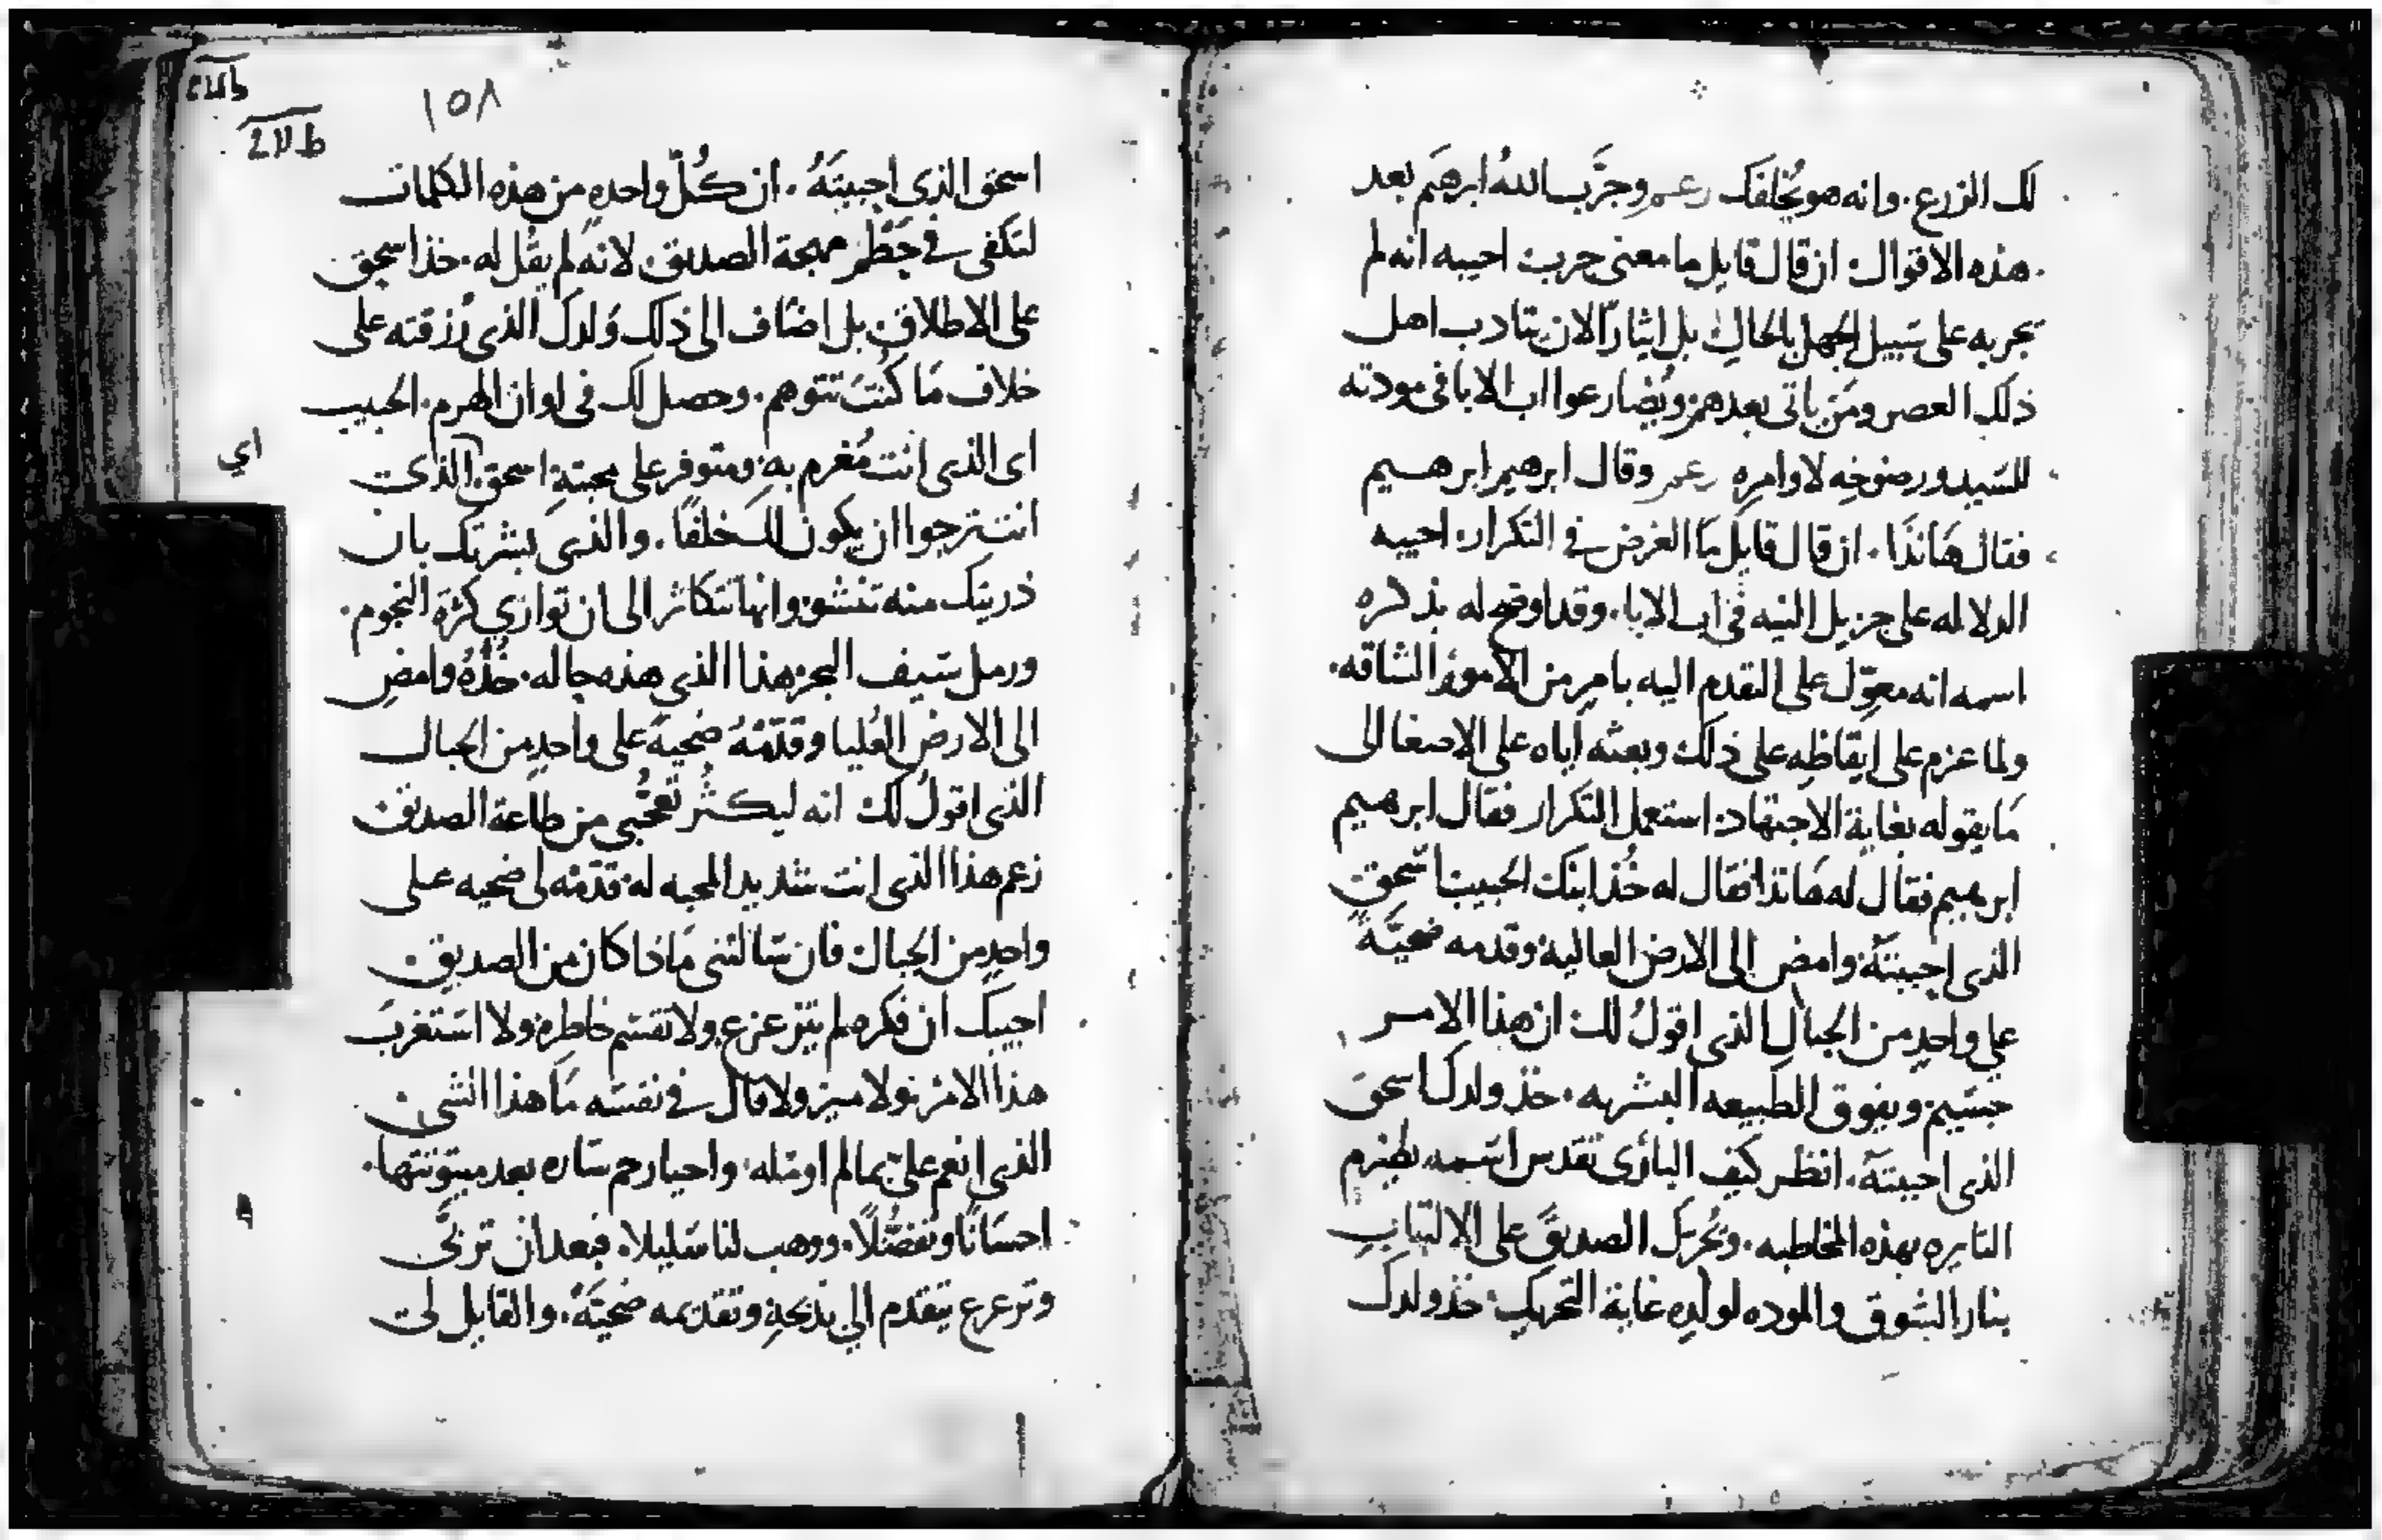 لك الزرع. وانه هو يخلفك رعمر وجرَّب اللهُ ابرهَيم بعد
هذه الاقوال ان قال قايل ما معنى جرب احيبه انه لم
يجربه على سَبيل الجهل بالحال بل ايثارًا لان يتادب اهل
ذلك العصر ومَن ياتى بعدهم ويُضارعوا اب الابا فى مودته
للسَيد ورضوخِه لاوامرِه رعمر وقال ابرهيم ابرهــيم
فقال هَانَذَا. ان قال قايل مَا الغرض في التكرار. احيبه
الدلاله على جزيل النيه في اب الابا. وقد اوضح له بذكره
اسمه انه معوّل على التقدم اليه بامرٍ من الامور الشاقه.
ولما عزم على ايقاظِه على ذلك وبعثه اياه على الاصغا الى
مَا يقوله بغاية الاجتهاد: استعمل التكرار فقال ابرهيم
ابرهيم فقال له هَانذا فقال له خُذ ابنك الحبيب اسَحق
الذى احببتَهُ وامض الى الارض العاليه وقدمه ضحيَّةً
علي واحدٍ من الجبال الذى اقولُ لك ان هذا الامـر
جسَيم ويفوق الطبيعه البشريه. خذ ولدك اسحق
الذى احببتَهُ. انظـر كيف البارى تقدس اسَـمه يُضرم
النايره بهذه المخاطبه. ويُحرِّك الصديقَ على الالتهاب
بنار الشوق والموده لولدِه غاية التحريك خذ ولدك
١٥٨
اسحق الذى احببتَهُ. ان كُلّ واحدهٍ من هذه الكلمات
لتكفى في حَطْمِ مهجة الصديق لانه لم يقُل له. خذ اسحق
على الاطلاق بل اضاف الى ذلك وَلدك الذى رُزقته على
خلاف مَا كُنتَ تتوهم. وحصل لك فى اوان الهرم. الحبيب
اي
اى الذى انت مُغرم به ومتوفر على محبتهِ اسحق الذى
انت ترجوا ان يكون لك خلفًا. والذى بشرتك بان
ذريتك منه تنشو وانها تتكاثر الى ان توازي كثرة النجوم.
ورمل سَيف البحر هذا الذي هذه حاله. خُذْهُ وامضِ
الى الارض العُليا وقدّمْهُ ضحيةً على واحدٍ من الجبال
الذى اقولُ لك انه ليكثُر تعجُّبي من طاعة الصديق
زعم هذا الذى انت شديد المحبه له قدّمْه لى ضحيه على
واحدٍ من الجبال فان سَالتنى مَاذا كان من الصديق
اجيبك ان فكره لم يتزعزع ولا تقسَم خاطره ولا اسَتغربَ
هذا الامر ولا ميز ولا قال في نفسَه مَا هذا الشي
الذى انعم علىّ بما لم اومله. واحيا رحم سَاره بعد ميتوتتها.
احسَانًا وتفضُّلًا. ووهب لنا سَليلا. فبعد ان تربَّى
وترعرع يتقدم الي بذبحهِ وتقديمه ضحيّةً. والقايل لى